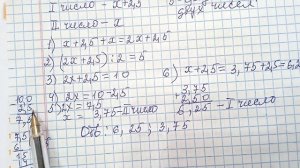 I число - x+2,5
II число - x
двух чисел
1) x + 2,5 + x = 2x + 2,5
2) (2x + 2,5) : 2 = 5
3) 2x + 2,5 = 10
6) x + 2,5 = 3,75 + 2,5 = 6,2
4) 2x = 10 - 2,5
5) 2x = 7,5
x = 3,75 - II число
3,75
+ 2,50
6,25 - I число
Отв: 6,25; 3,75
10,0
2,5